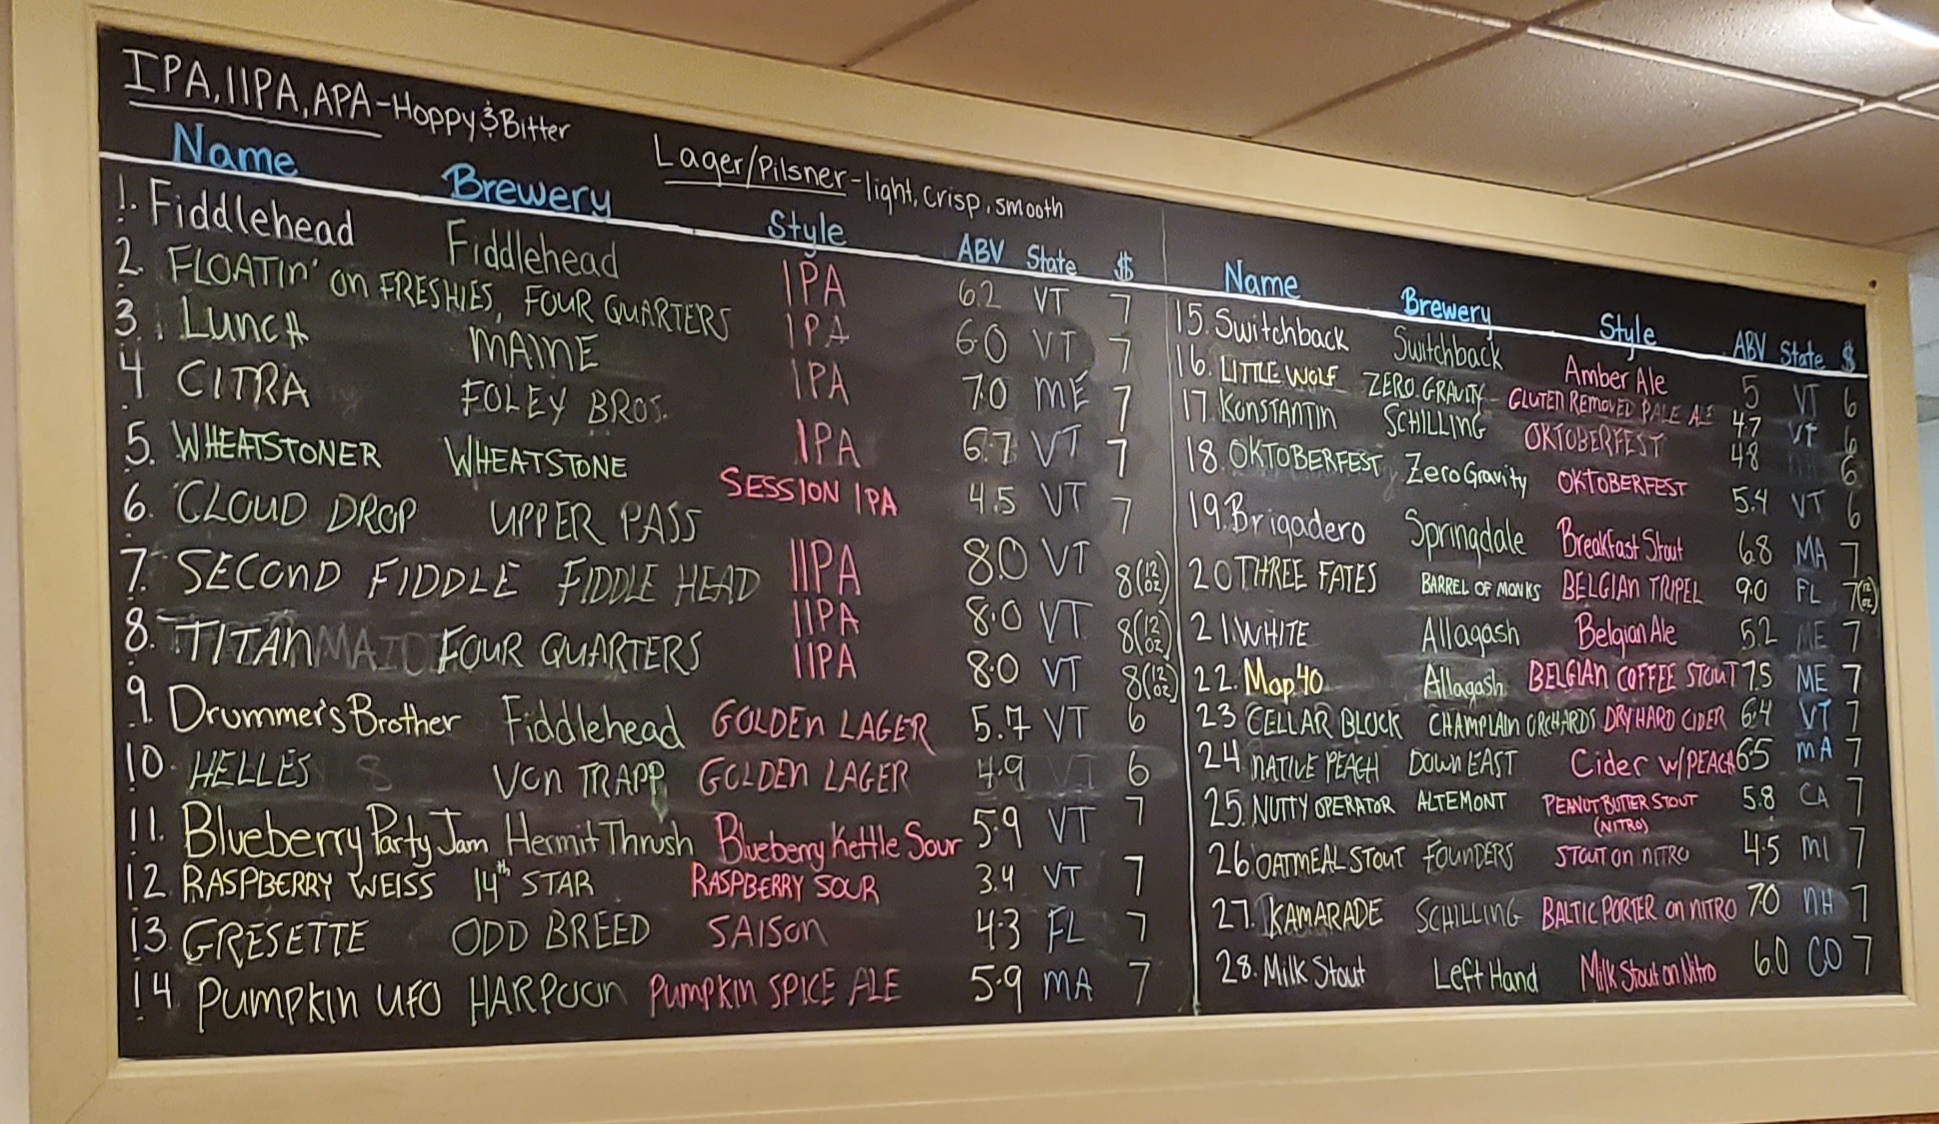 IPA, IIPA, APA - Hoppy & Bitter
Lager/Pilsner - light, crisp, smooth
Name Brewery Style ABV State $
1. Fiddlehead Fiddlehead IPA 6.2 VT 7
2. FLOATIN' ON FRESHIES, FOUR QUARTERS IPA 6.0 VT 7
3. LUNCH MAINE IPA 7.0 ME 7
4 CITRA FOLEY BROS. IPA 6.7 VT 7
5. WHEATSTONER WHEATSTONE SESSION IPA 4.5 VT 7
6. CLOUD DROP UPPER PASS IIPA 8.0 VT 8(12 oz)
7. SECOND FIDDLE FIDDLE HEAD IIPA 8.0 VT 8(12 oz)
8. TITAN FOUR QUARTERS IIPA 8.0 VT 8(12 oz)
9. Drummer's Brother Fiddlehead GOLDEN LAGER 5.7 VT 6
10. HELLES VON TRAPP GOLDEN LAGER 4.9 VT 6
11. Blueberry Party Jam Hermit Thrush Blueberry Kettle Sour 5.9 VT 7
12 RASPBERRY WEISS 14th STAR RASPBERRY SOUR 3.4 VT 7
13. GRESETTE ODD BREED SAISON 4.3 FL 7
14 PUMPKIN UFO HARPOON PUMPKIN SPICE ALE 5.9 MA 7
Name Brewery Style ABV State $
15. Switchback Switchback Amber Ale 5 VT 6
16. LITTLE WOLF ZERO GRAVITY GLUTEN REMOVED PALE ALE 4.7 VT 6
17. KONSTANTIN SCHILLING OKTOBERFEST 4.8 NH 6
18. OKTOBERFEST Zero Gravity OKTOBERFEST 5.4 VT 6
19. Brigadero Springdale Breakfast Stout 6.8 MA 7
20 THREE FATES BARREL OF MONKS BELGIAN TRIPEL 9.0 FL 7(12 oz)
21. WHITE Allagash Belgian Ale 5.2 ME 7
22. Map 40 Allagash BELGIAN COFFEE STOUT 7.5 ME 7
23 CELLAR BLOCK CHAMPLAIN ORCHARDS DRY HARD CIDER 6.4 VT 7
24 NATIVE PEACH DOWN EAST Cider w/PEACH 6.5 MA 7
25. NUTTY OPERATOR ALTEMONT PEANUT BUTTER STOUT (NITRO) 5.8 CA 7
26 OATMEAL STOUT FOUNDERS STOUT ON NITRO 4.5 MI 7
27. KAMARADE SCHILLING BALTIC PORTER ON NITRO 7.0 NH 7
28. Milk Stout Left Hand Milk Stout on Nitro 6.0 CO 7